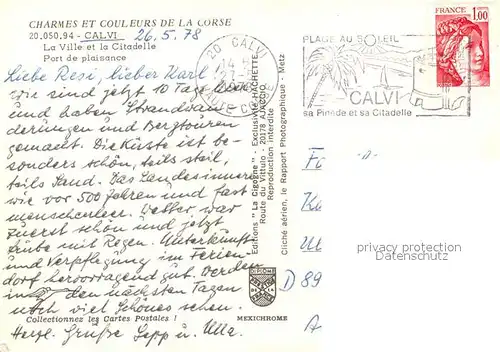 CHARMES ET COULEURS DE LA CORSE
20.050.94 - CALVI
26.5.78
La Ville et la Citadelle
Port de plaisance
Liebe Resi, lieber Karl!
Wir sind jetzt 10 Tage oben
und haben Strandwan
derungen und Bergtouren
gemacht. Die Küste ist be-
sonders schön, teils steil,
teils Sand. Das Landesinnere
wie vor 500 Jahren und fast
menschenleer. Wetter war
zuerst schön und jetzt
trübe mit Regen. Unterkunft
und Verpflegung im Ferien-
dorf hervorragend gut. Werden
in den nächsten Tagen
noch viel Schönes sehen.
Collectionnez les Cartes Postales !
MEXICHROME
Herzl. Grüße Sepp u. Ulla.
Editions "La Cigogne" - Exclusivité HACHETTE
Route du Vittulo - 20178 AJACCIO
Reproduction interdite
Cliché aérien, le Rapport Photographique - Metz
20 CALVI
PLAGE AU SOLEIL
CALVI
sa Pinède et sa Citadelle
FRANCE
1,00
D 89
privacy protection